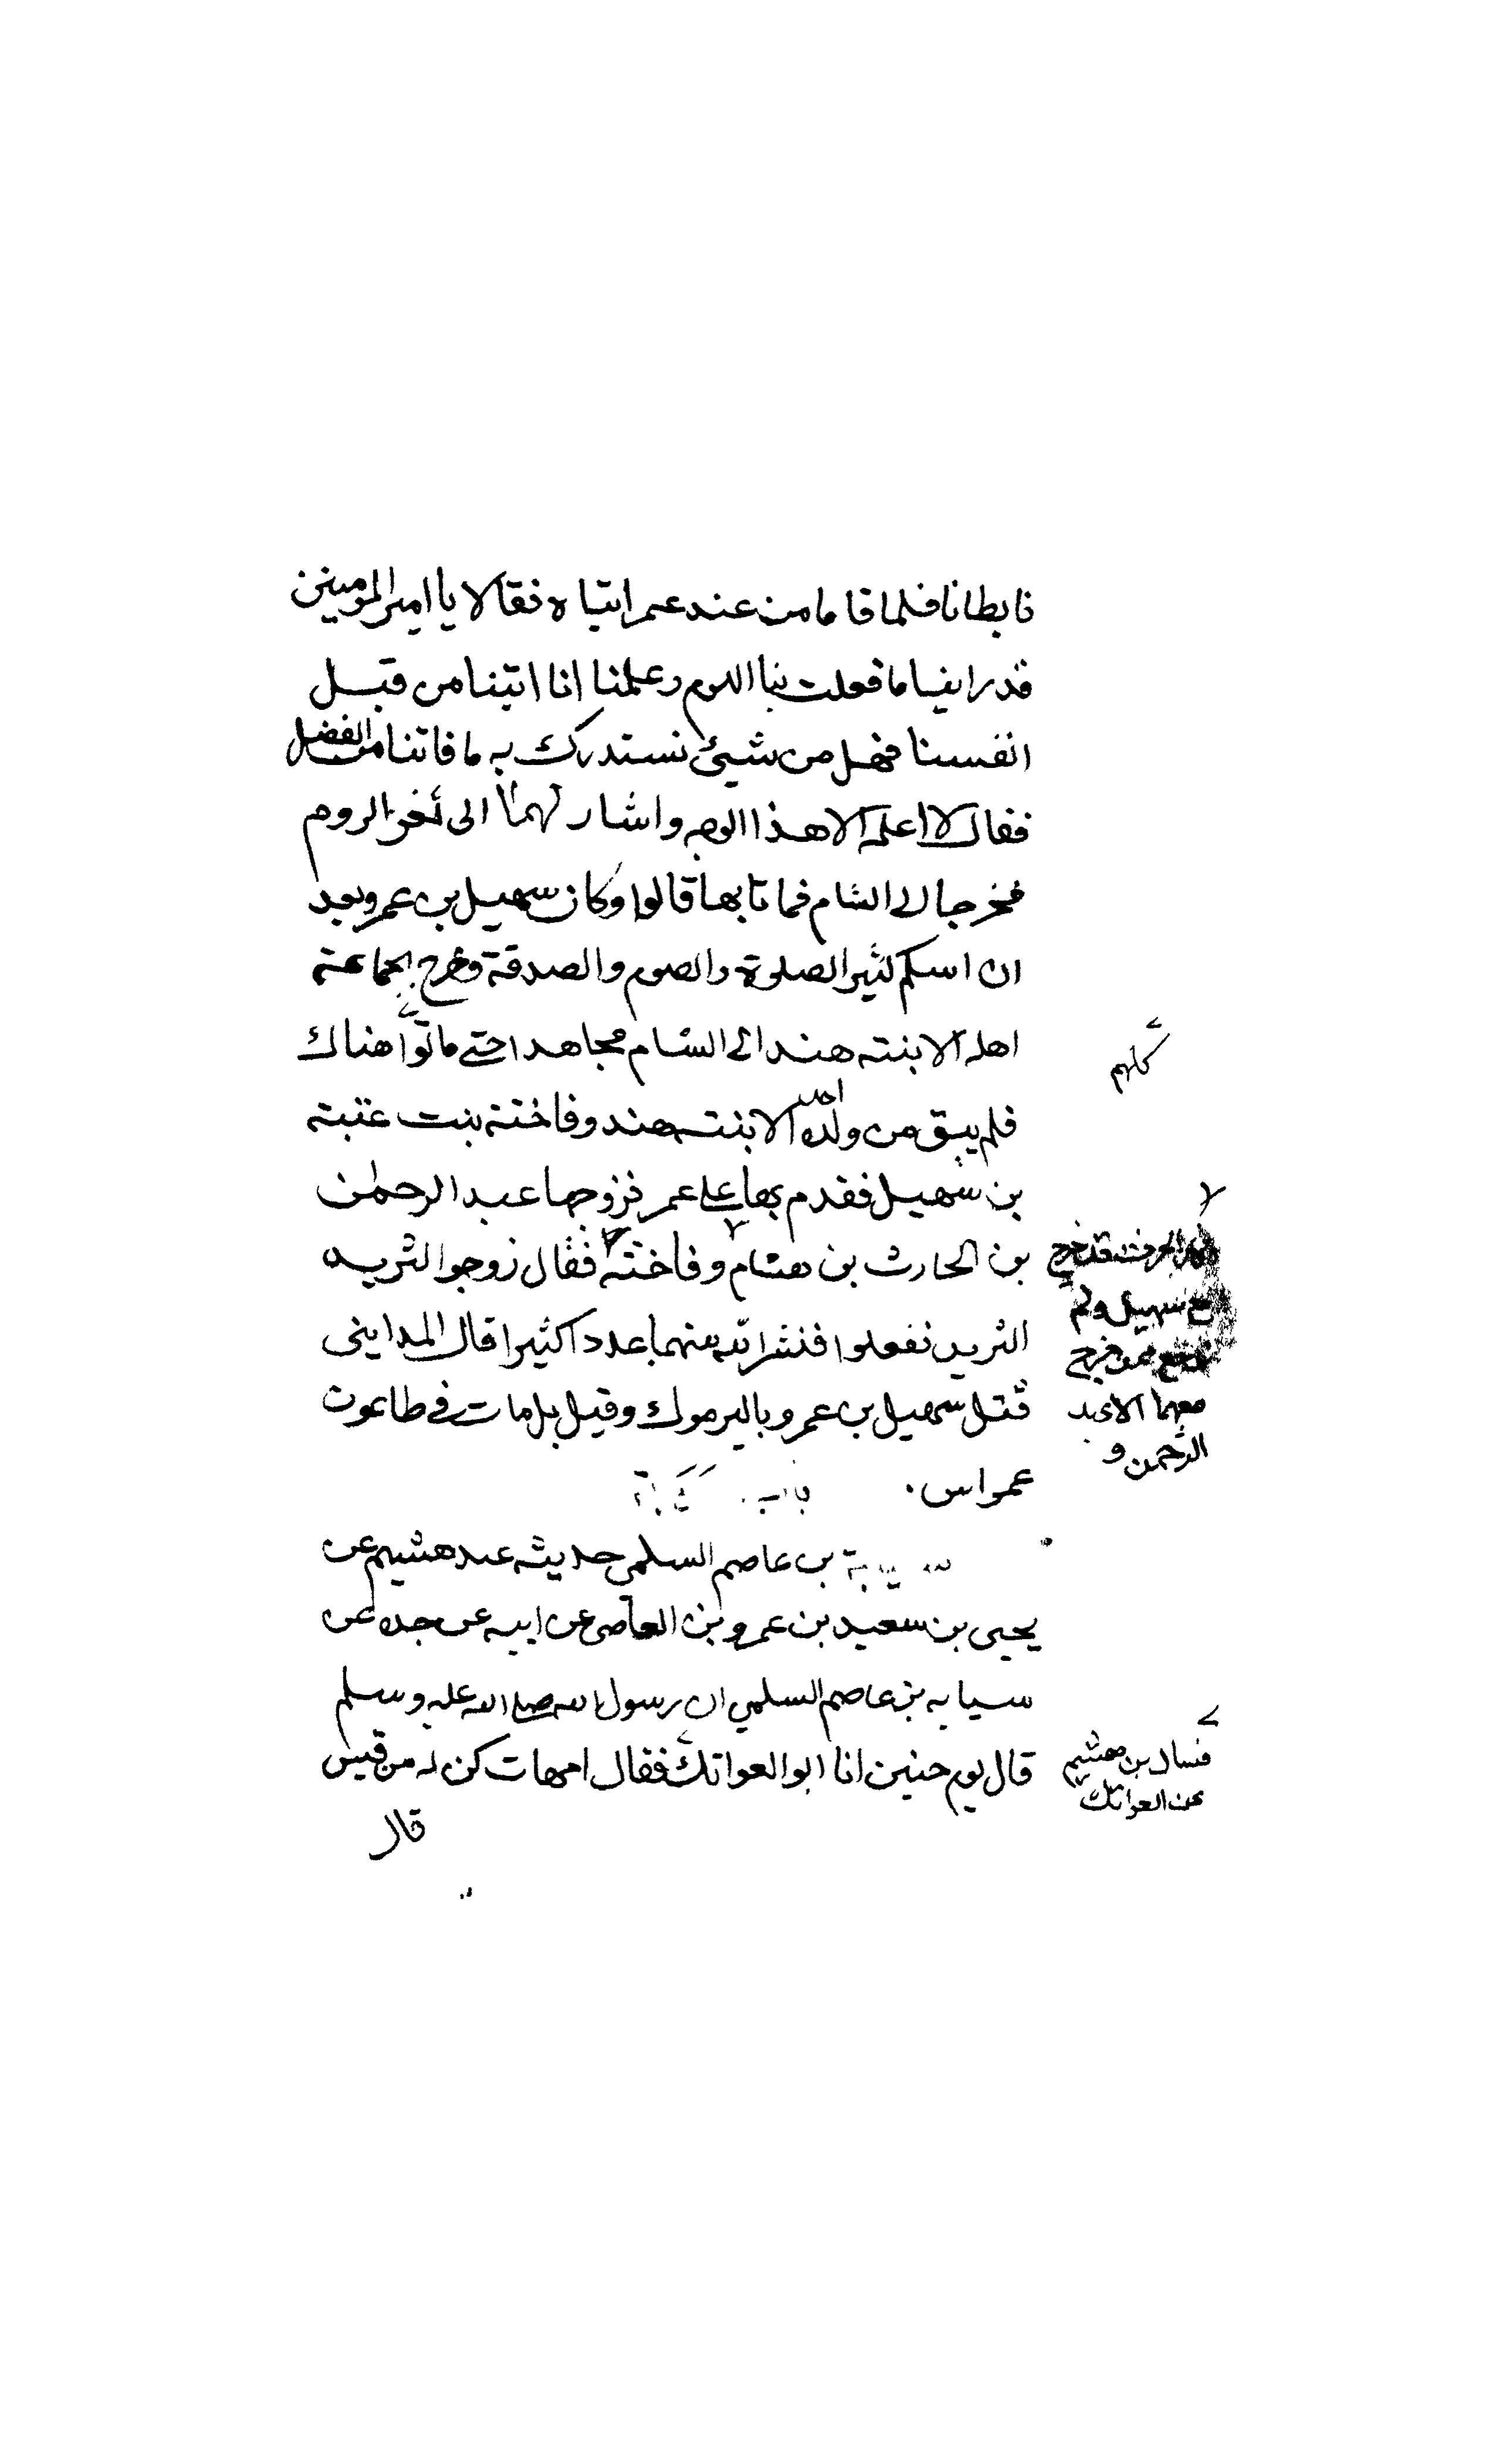 فابطانا فلما قاما من عند عمر اتياه فقالا يا امير المومنين
قد راينا ما فعلت بنا اليوم وعلمنا انا اتينا من قبل
انفسنا فهل من شيئ نستدرك به ما فاتنا من الفضل
فقال لا اعلمه الا هذا الوجه واشار لهما الى ثغر الروم
فخرجا الى الشام فماتا بها قالوا وكان سهيل بن عمرو بعد
ان اسلم كثير الصلوة والصوم والصدقة وخرج بجماعة
اهله الا بنته هندا الى الشام مجاهدا حتى ماتوا هناك
كلهم
فلم يبق من ولده احد الا بنته هند وفاختة بنت عتبة
بن سهيل فقدم بها على عمر فزوجها عبد الرحمن
بن الحارث بن هشام وفاختة فقال زوجوا الشريد
الشريدة ففعلوا فنشر الله منهما عددا كثيرا قال المدايني
قتل سهيل بن عمرو باليرموك وقيل بل مات في طاعون
عمواس.
قد خرج
مع سهيل ولم
يرجع ممن خرج
معهما الا عبد
الرحمن و
باب
بن عاصم السلمي حديثه عند هشيم عن
يحيى بن سعيد بن عمرو بن العاصي عن ابيه عن جده عن
سيابه بن عاصم السلمي ان رسول الله صلى الله عليه وسلم
قال يوم حنين انا ابو العواتك فقال امهات كن له من قيس
فسال بن هشيم
عن العواتك
قال